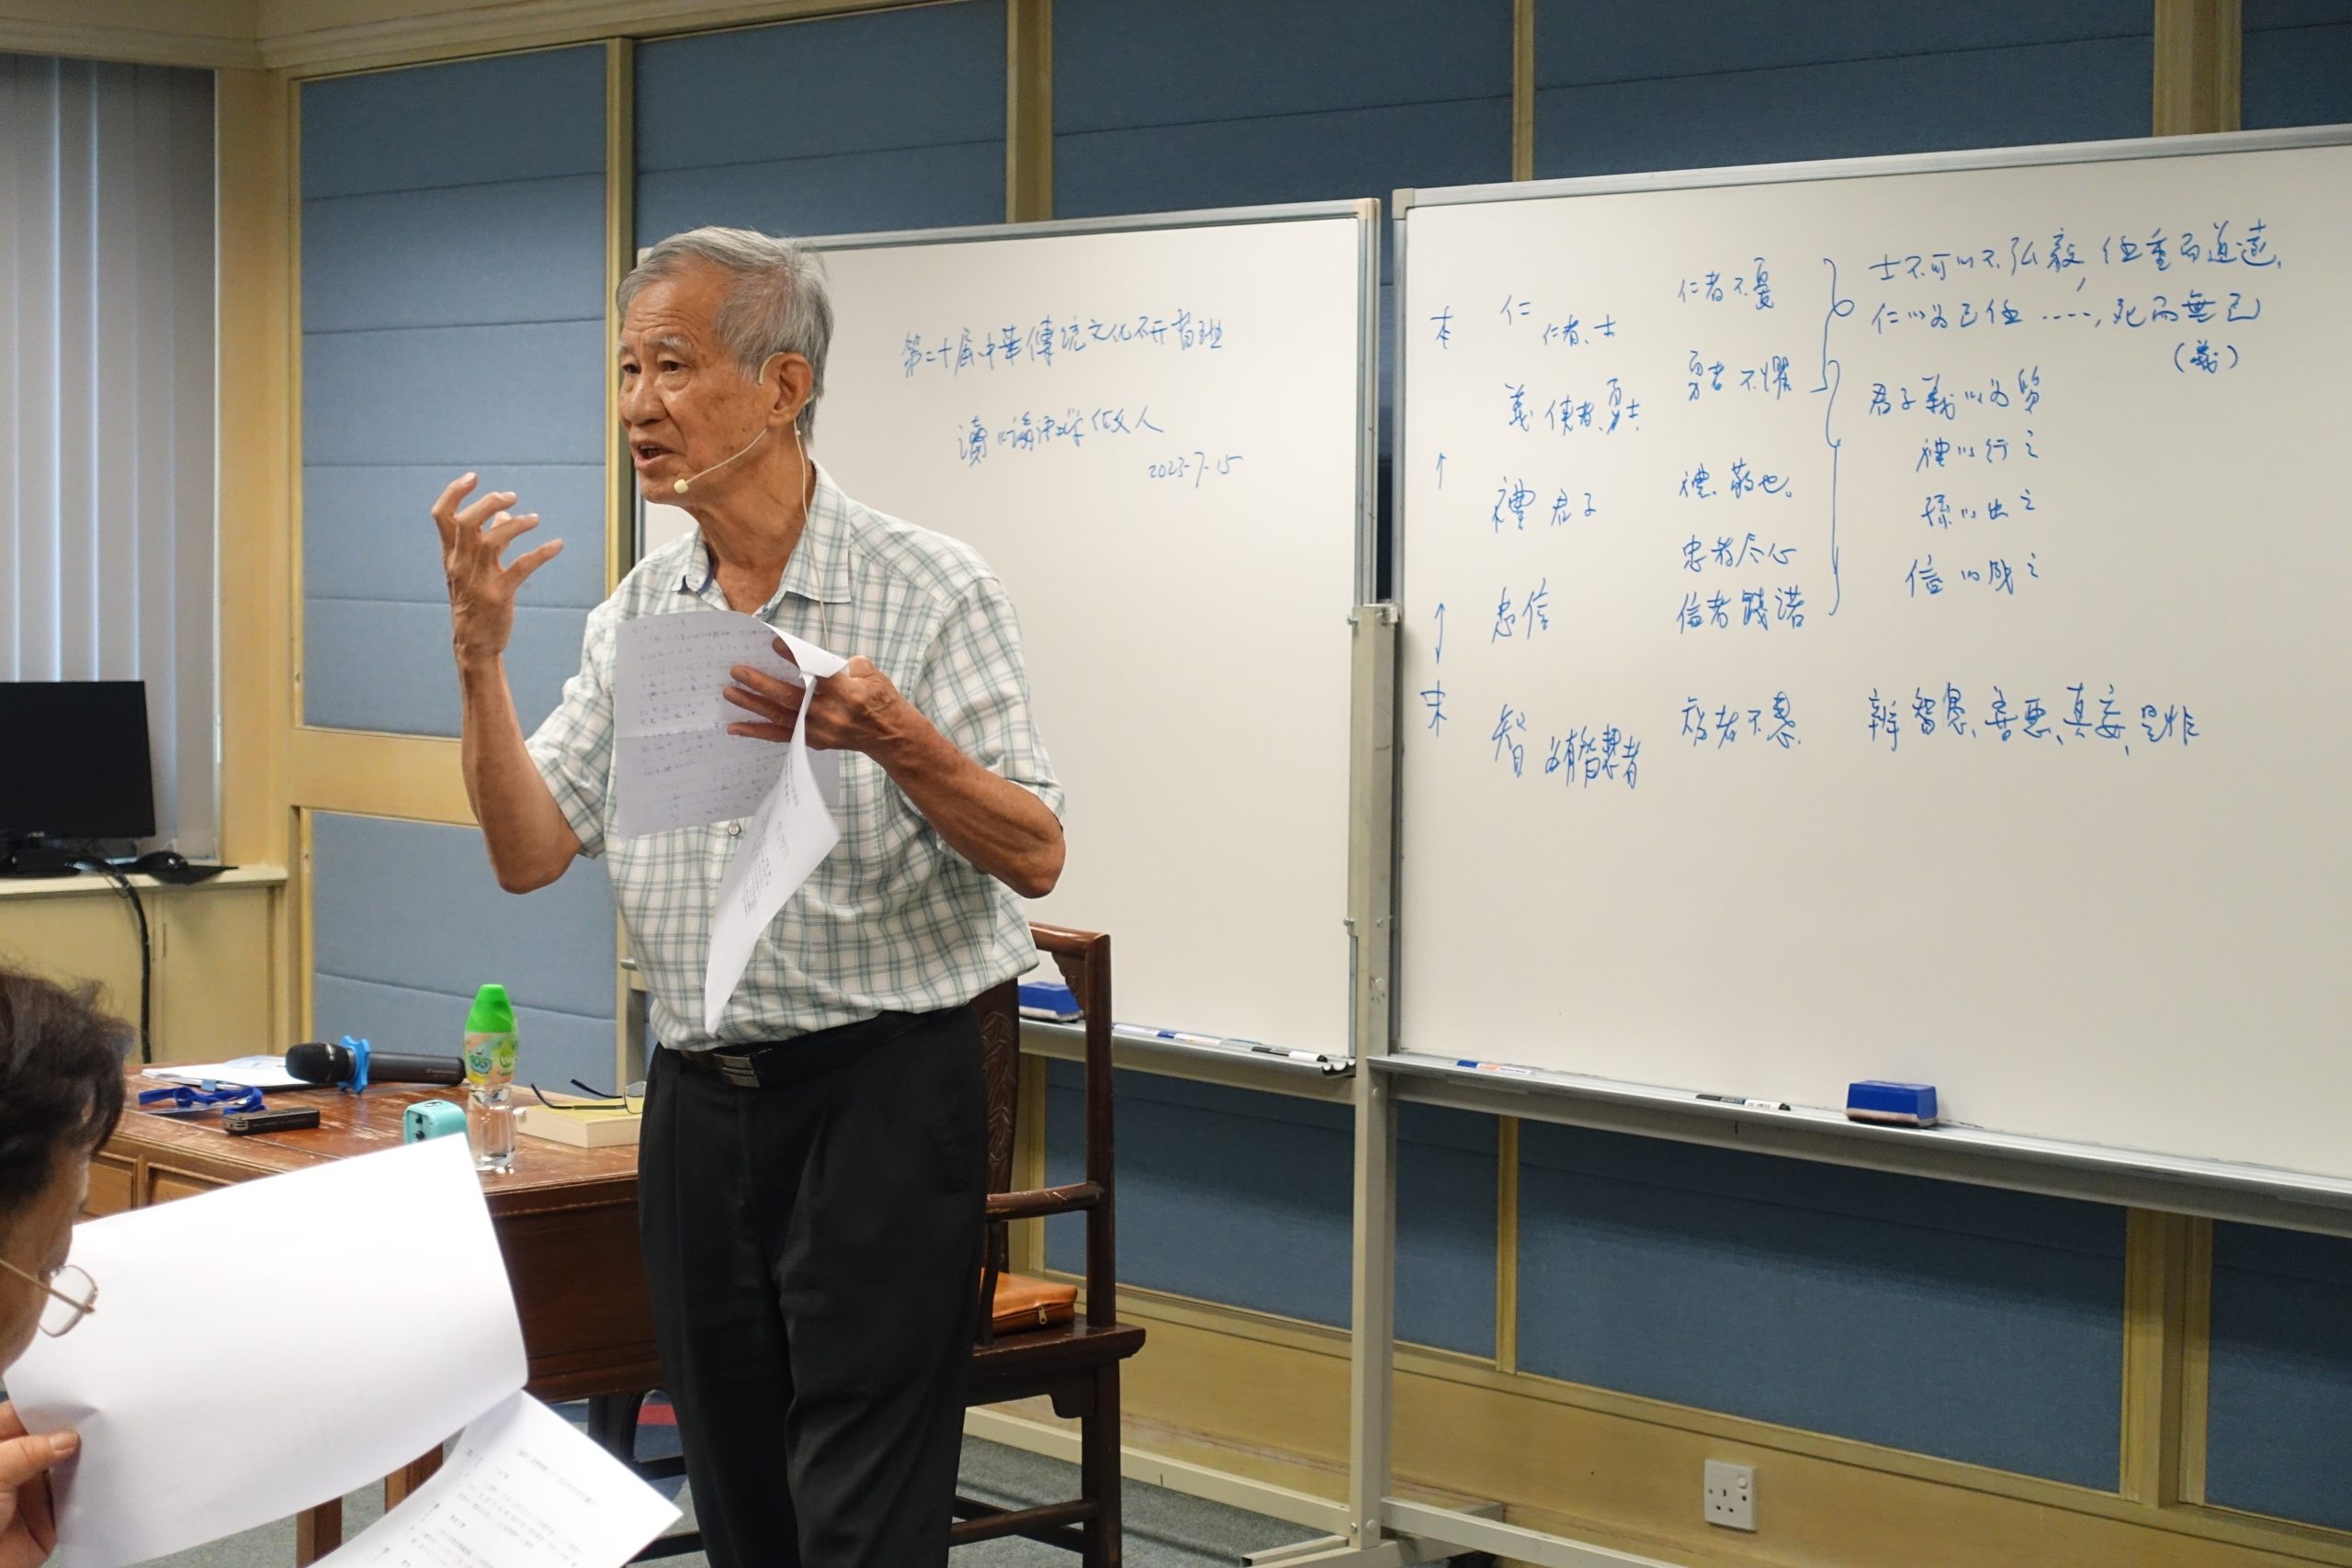 第二十屆中華傳統文化研習班
讀《論語》學做人
2023-7-15
本 仁 仁者、士 仁者不憂
士不可以不弘毅, 任重而道遠.
仁以為己任 ‥‥, 死而無已
(義)
義 俠者、勇士 勇者不懼
君子義以為質
禮以行之
禮 君子 禮、敬也。
孫以出之
忠者尽心
信以成之
忠信 信者踐诺
末 智 有智慧者 知者不惑. 辨智愚、善惡、真妄、是非